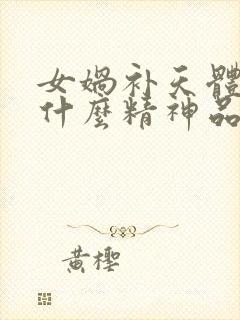 女媧补天體
什麼精神品
黄樱